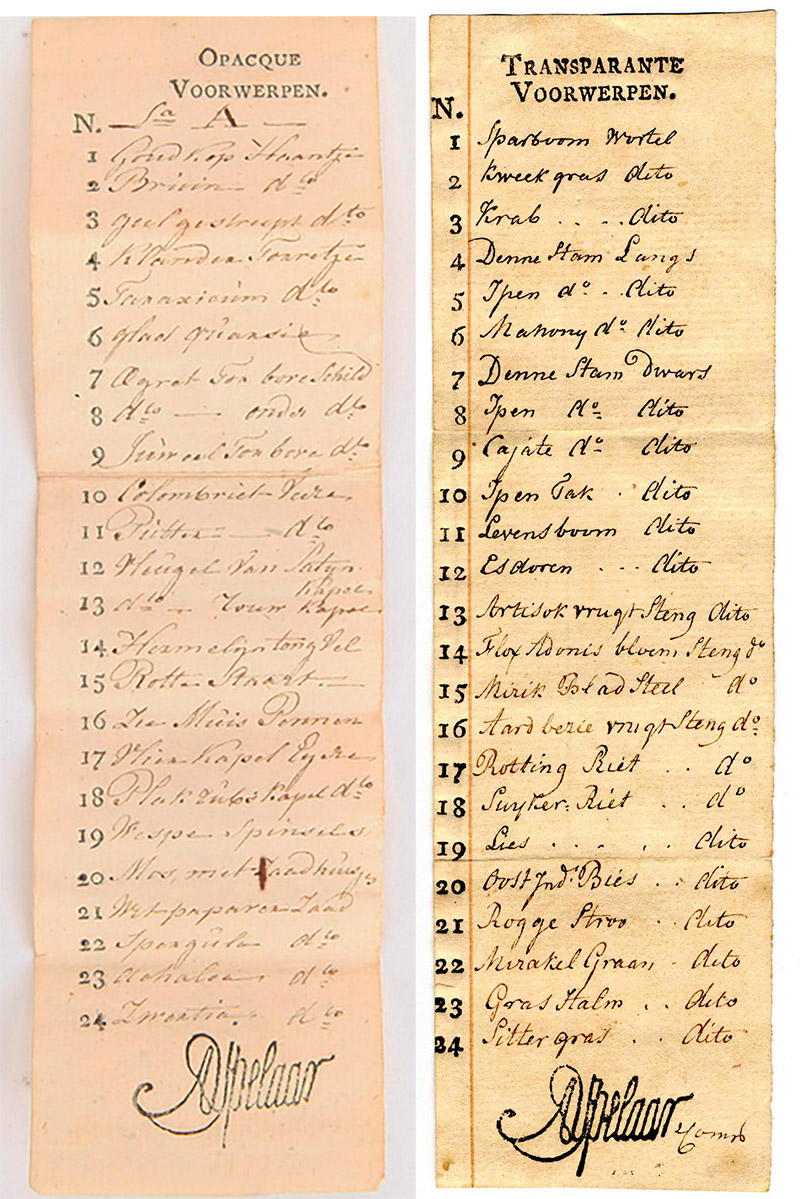 OPACQUE
VOORWERPEN.
N. La A
1 Goudkop Haantje
2 Bruin dto
3 geel gestreept dto
4 Klander Torretje
5 dto
6 glad
7 Schild
8 dto onder dto
9 Juweel Torbore dto
10 Colombriet Veere
11 Putter dto
12 Vleugel Van Satyn
Kapel
13 dto Kapel
14 Hermelyn tong Vel
15 Rotte Staart
16 Zee Muis Pennen
17 Vlier Kapel Eyere
18 Kapel dto
19 Wespe Spinsels
20 Mos, met Zaadhuisjes
21 Zaad
22 Spergula dto
23 dto
24 dto
ASpelaar
TRANSPARANTE
VOORWERPEN.
N.
1 Sparboom Wortel
2 Kweek gras dito
3 Krab . . . . dito
4 Denne Stam Langs
5 Ipen do - . dito
6 Mahony do dito
7 Denne Stam Dwars
8 Ipen do dito
9 Cajate do dito
10 Ipen Tak . dito
11 Levensboom dito
12 Esdoren - - - dito
13 Artisok vrugt Steng dito
14 Flox Adonis bloem Steng do
15 Mirik Blad Steel do
16 Aard bezie vrugt Steng do
17 Rotting Riet . . do
18 Suyker: Riet . . do
19 Lies . . . . dito
20 Oost Inds Bies . . dito
21 Rogge Stroo . . dito
22 Mirakel Graan - dito
23 Gras Halm . . dito
24 Sitter gras . dito
ASpelaar